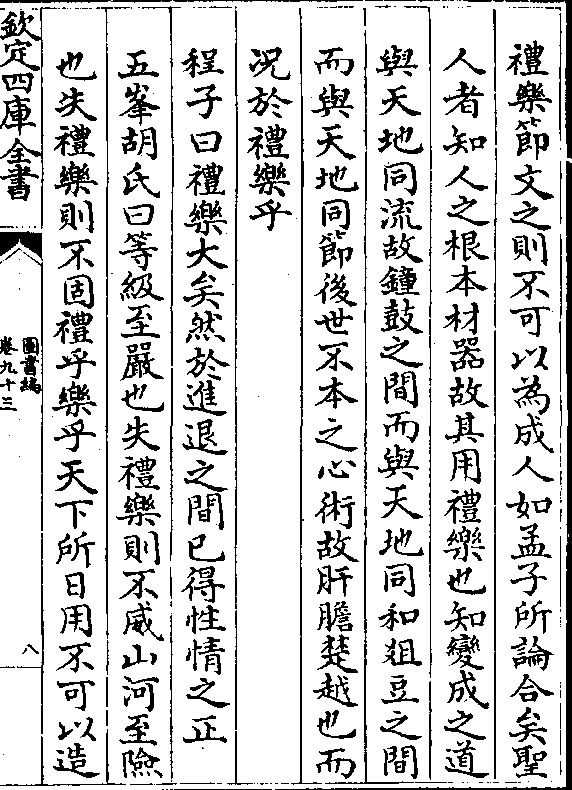 禮樂節文之則不可以為成人如孟子所論合矣聖
人者知人之根本材器故其用禮樂也知變成之道
與天地同流故鍾鼓之間而與天地同和俎豆之間
而與天地同節後世不本之心術故肝膽楚越也而
况於禮樂乎
程子曰禮樂大矣然於進退之間已得性情之正
五峯胡氏曰等級至嚴也失禮樂則不威山河至險
也失禮樂則不固禮乎樂乎天下所日用不可以造
欽定四庫全書
圖書編
卷九十三
八